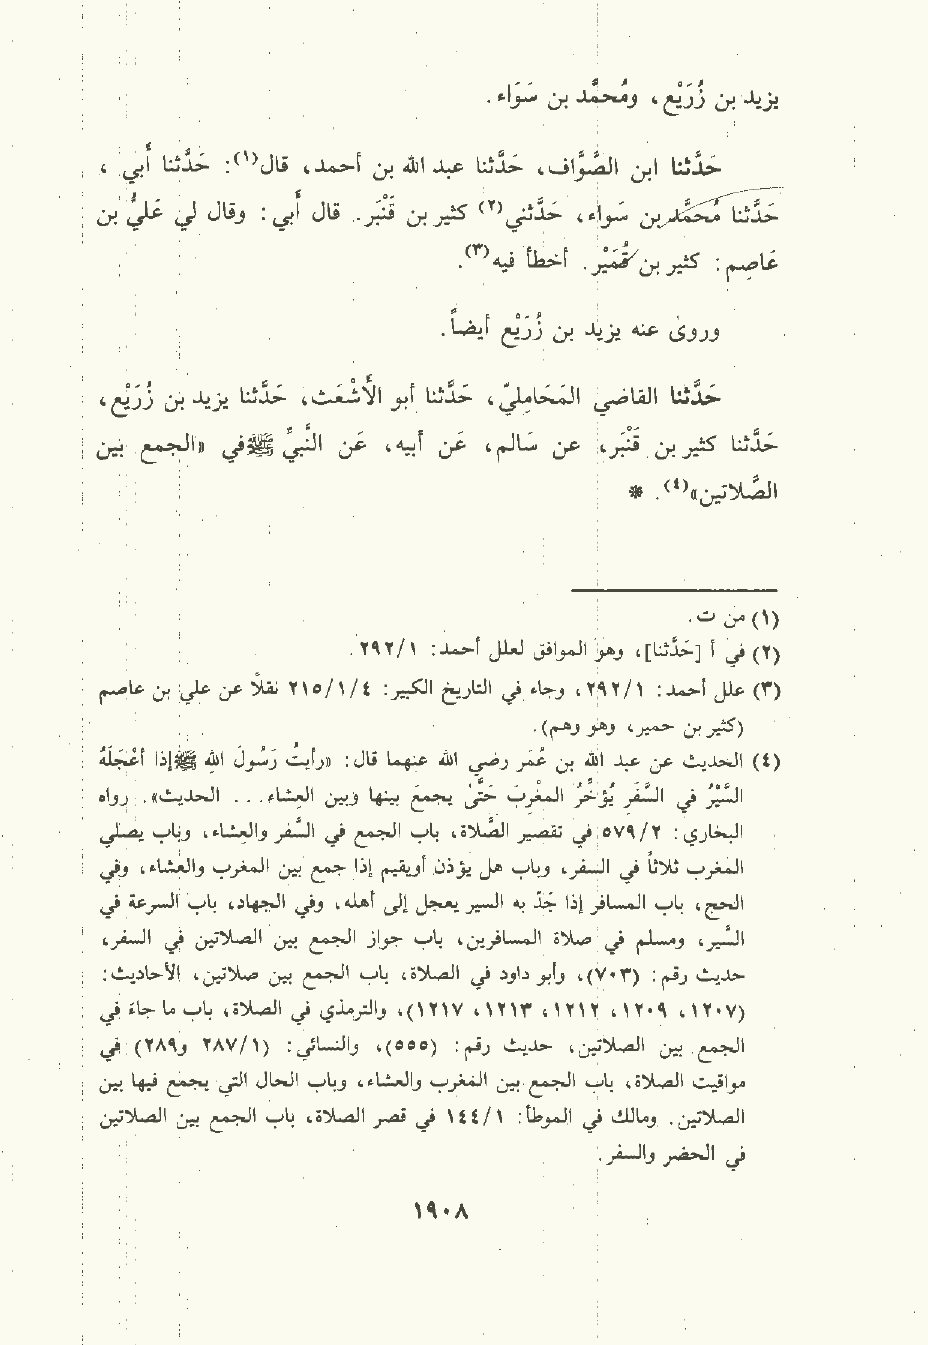 يزيد بن زُرَيْع، ومُحمَّد بن سَوَاء.
حَدَّثنا ابن الصَّوَّاف، حَدَّثنا عبد الله بن أحمد، قال(١): حَدَّثنا أَبي،
حَدَّثنا مُحمَّد بن سَواء، حَدَّثني(٢) كثير بن قَنْبَر. قال أَبي: وقال لي عَليُّ بن
عَاصِم: كثير بن قُمَيْر. أخطأ فيه(٣).
وروىٰ عنه يزيد بن زُرَيْع أيضاً.
حَدَّثنا القاضي المَحَامِليّ، حَدَّثنا أبو الأَشْعَث، حَدَّثنا يزيد بن زُرَيْع،
حَدَّثنا كثير بن قَنْبَر، عن سَالم، عَن أبيه، عَن النَّبيِّ ﷺ في «الجمع بين
الصَّلاتين»(٤). *
(١) من ت.
(٢) في أ [حَدَّثنا]، وهو الموافق لعلل أحمد: ٢٩٢/١.
(٣) علل أحمد: ٢٩٢/١، وجاء في التاريخ الكبير: ٢١٥/١/٤ نقلاً عن علي بن عاصم
(كثير بن حمير، وهو وهم).
(٤) الحديث عن عبد الله بن عُمَر رضي الله عنهما قال: «رأيتُ رَسُولَ الله ﷺ إذا أعْجَلَهُ
السَّيْرُ في السَّفَر يُؤَخِّرُ المغْرِبَ حَتَّى يجمعَ بينها وبين العِشاء... الحديث». رواه
البخاري: ٥٧٩/٢ في تقصير الصَّلاة، باب الجمع في السَّفر والعِشاء، وباب يصلي
المغرب ثلاثاً في السفر، وباب هل يؤذن أويقيم إذا جمع بين المغرب والعشاء، وفي
الحج، باب المسافر إذا جَدّ به السير يعجل إلى أهله، وفي الجهاد، باب السرعة في
السَّير، ومسلم في صلاة المسافرين، باب جواز الجمع بين الصلاتين في السفر،
حديث رقم: (٧٠٣)، وأبو داود في الصلاة، باب الجمع بين صلاتين، الأحاديث:
(١٢٠٧، ١٢٠٩، ١٢١٢، ١٢١٣، ١٢١٧)، والترمذي في الصلاة، باب ما جاءَ في
الجمع بين الصلاتين، حديث رقم: (٥٥٥)، والنسائي: (٢٨٧/١ و٢٨٩) في
مواقيت الصلاة، باب الجمع بين المغرب والعشاء، وباب الحال التي يجمع فيها بين
الصلاتين. ومالك في الموطأ: ١٤٤/١ في قصر الصلاة، باب الجمع بين الصلاتين
في الحضر والسفر.
١٩٠٨